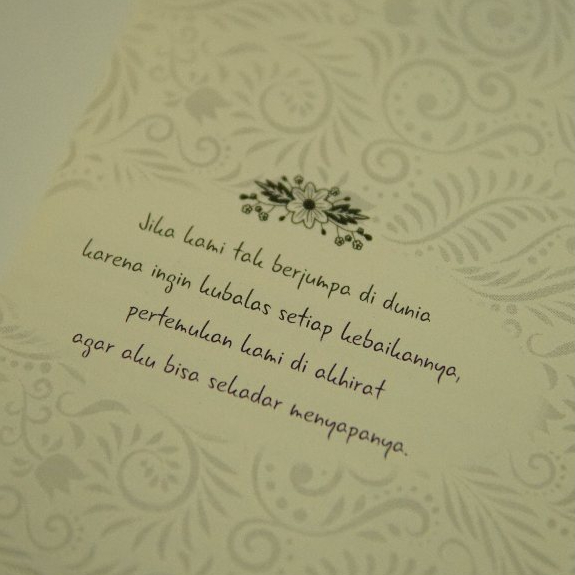 Jika kami tak berjumpa di dunia
karena ingin kubalas setiap kebaikannya,
pertemukan kami di akhirat
agar aku bisa sekadar menyapanya.